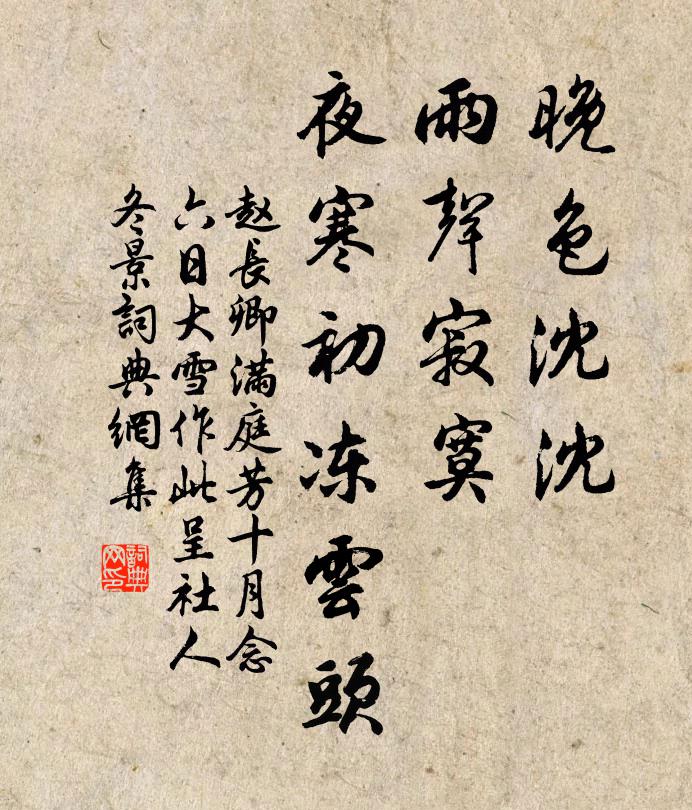 晚色沈沈
雨聲寂寞
夜寒初冻雲頭
赵長卿满庭芳十月念
六日大雪作此呈社人
冬景詞典網集
詞典网印